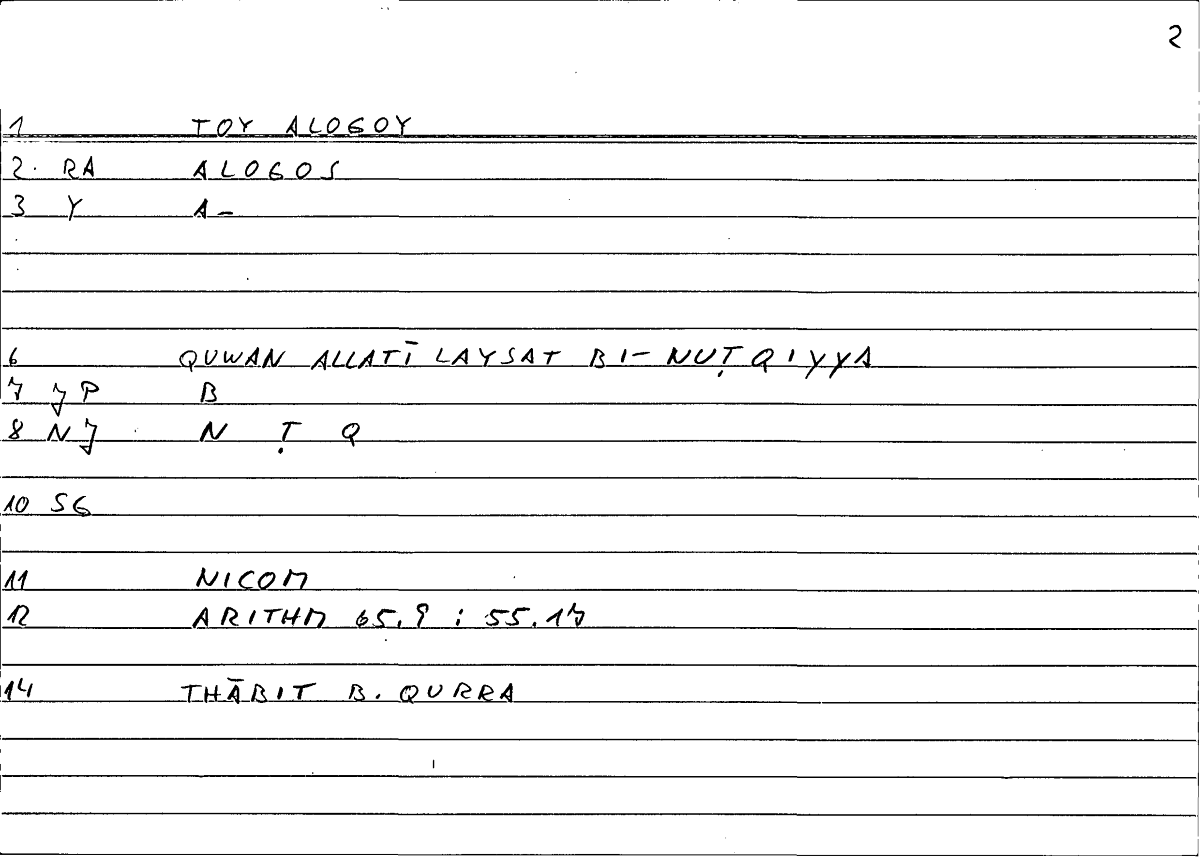 2
1 TOY ALOGOY
2. RA ALOGOS
3 Y A-
6 QUWAN ALLATĪ LAYSAT BI- NUṬQIYYA
7 JP B
8 NJ N Ṭ Q
10 SG
11 NICOM
12 ARITHM 65.9 : 55.17
14 THĀBIT B. QURRA